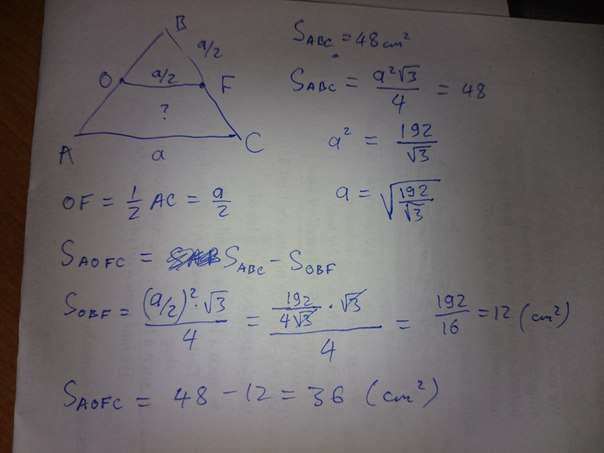 B
a/2
O
a/2
F
?
A
a
C
S_ABC = 48 cm²
S_ABC = a²√3/4 = 48
a² = 192/√3
a = √(192/√3)
OF = 1/2 AC = a/2
S_AOFC = S_ABC - S_OBF
S_OBF = (a/2)²·√3/4 = 192/4√3 · √3/4 = 192/16 = 12 (cm²)
S_AOFC = 48 - 12 = 36 (cm²)